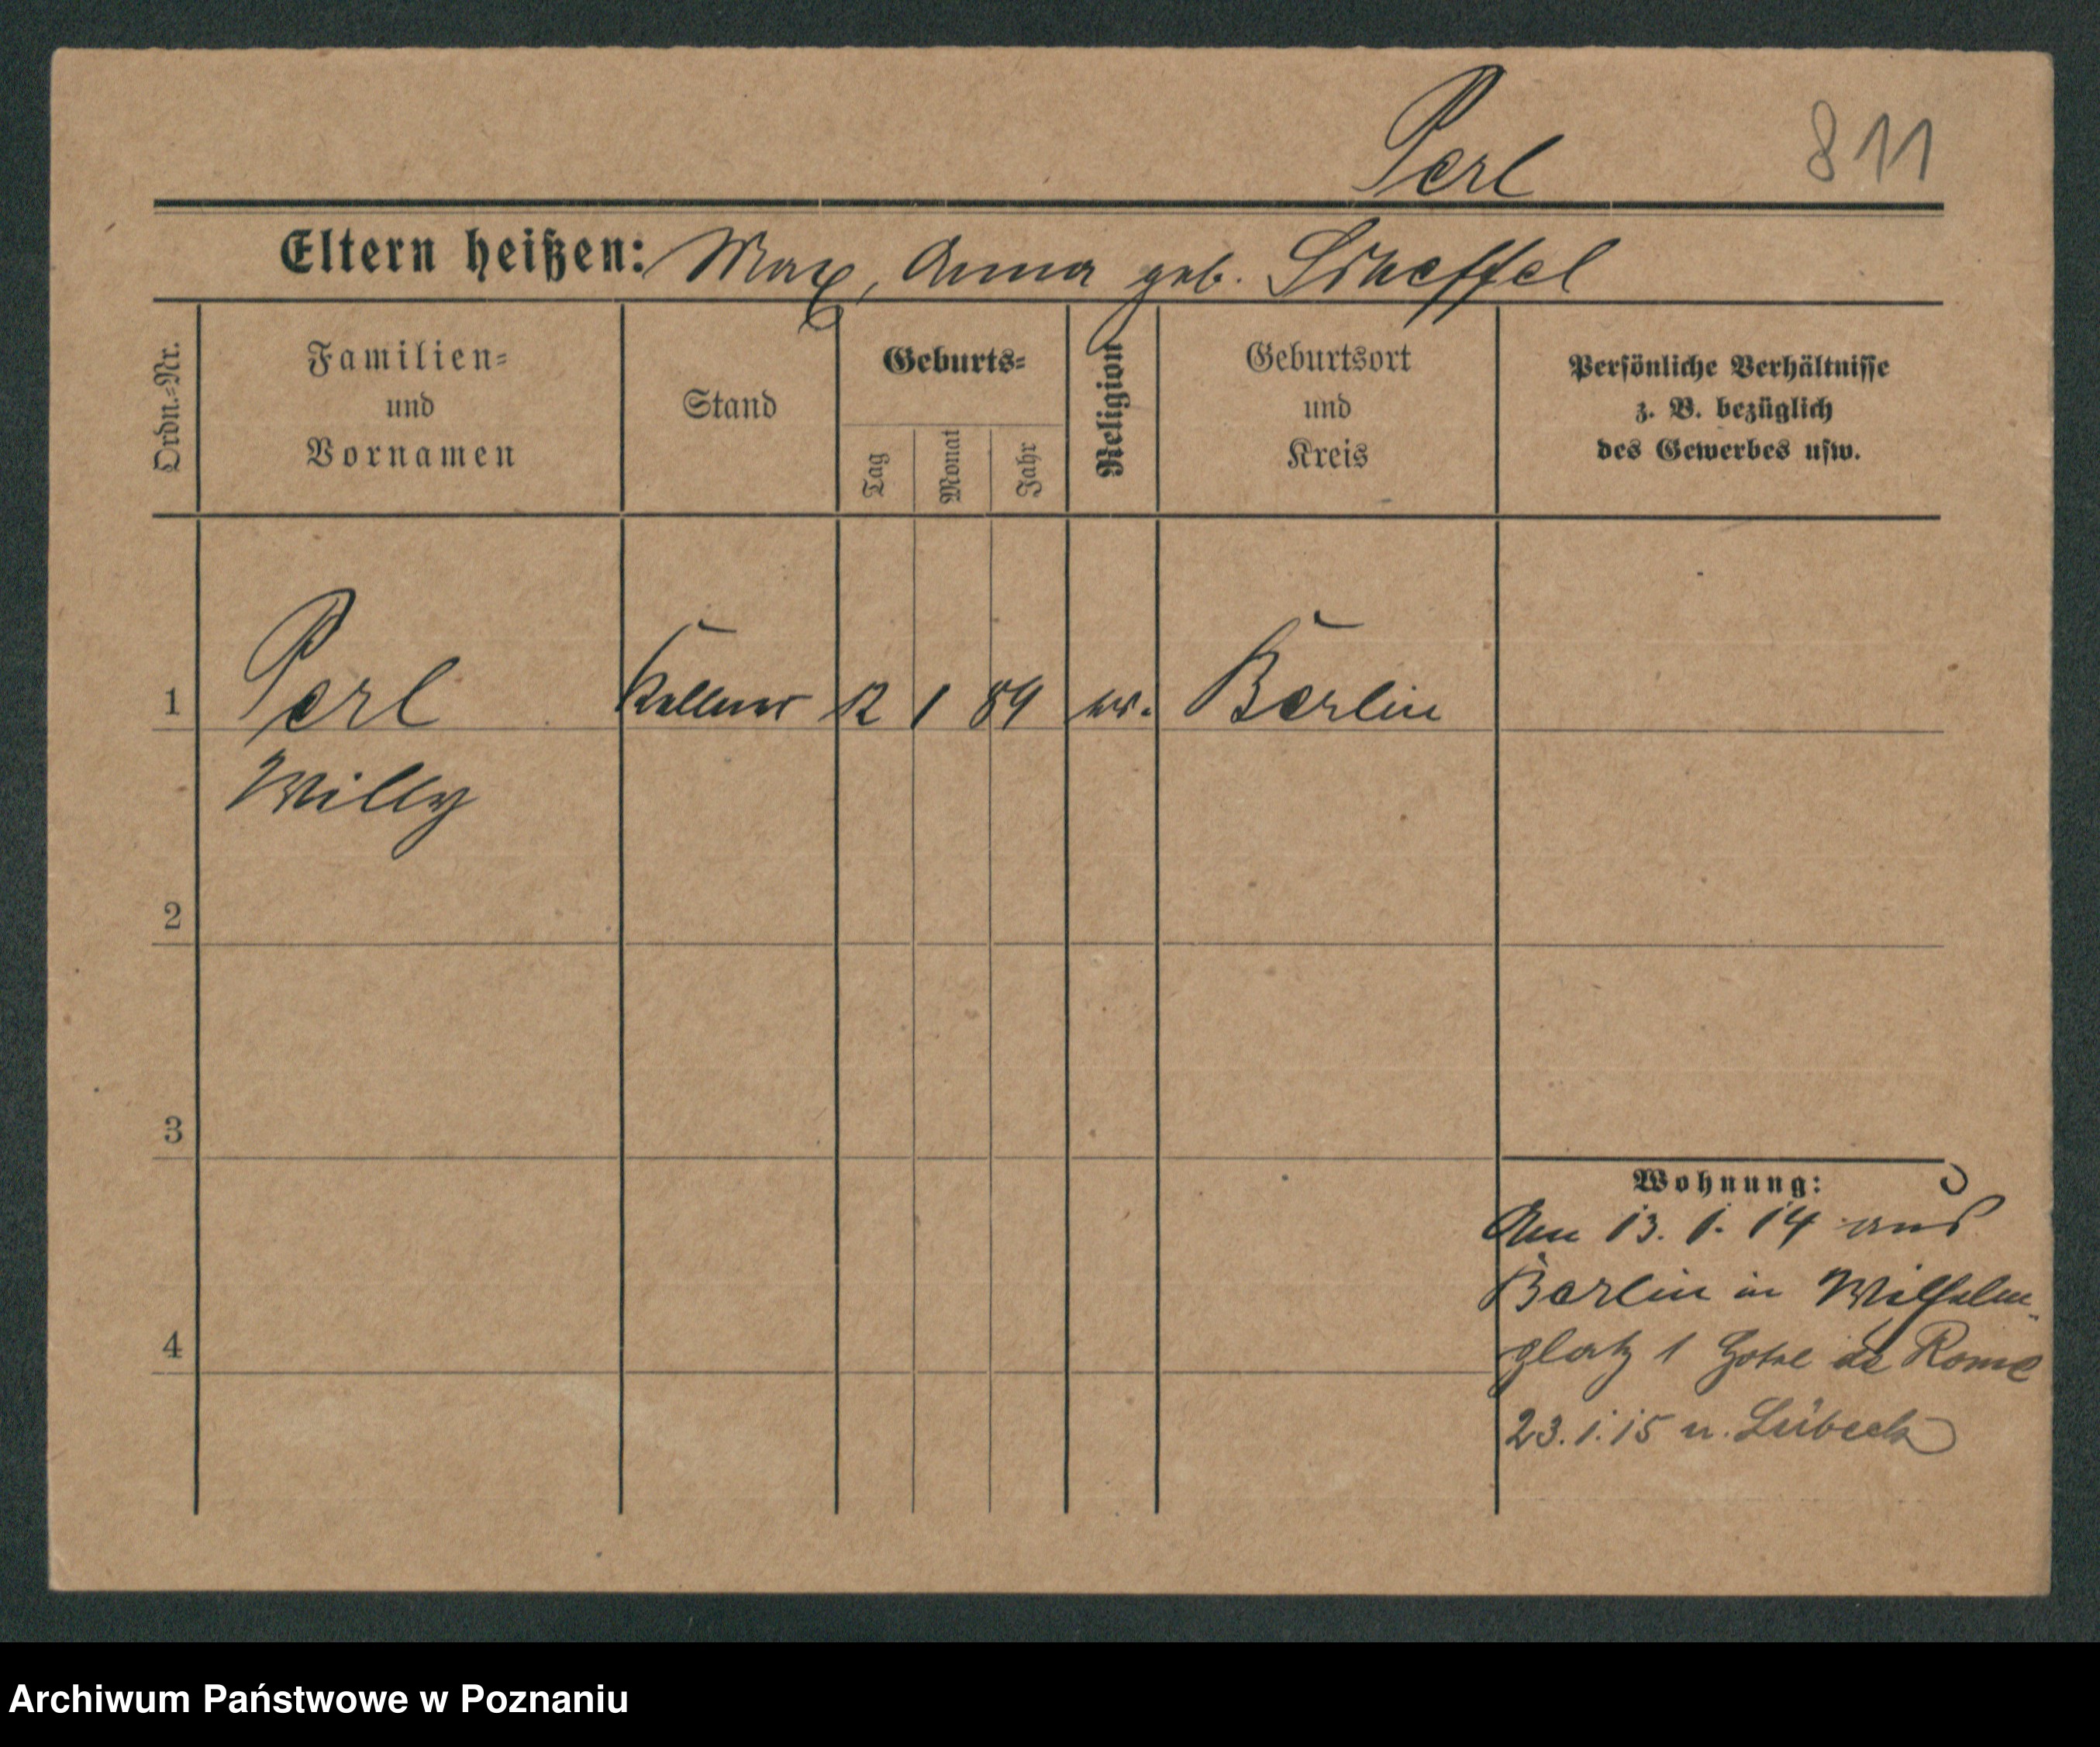 Perl 811
Eltern heißen: Max, Anna geb. Scheffel
Ordn.-Nr.
Familien-
und
Vornamen
Stand
Geburts-
Tag
Monat
Jahr
Religion
Geburtsort
und
Kreis
Persönliche Verhältnisse
z. B. bezüglich
des Gewerbes usw.
1 Perl Kellner 12 1 89 ev. Berlin
Willy
2
3
4
Wohnung:
Am 13. 1. 14 aus
Berlin in Wilhelm-
platz 1 Hotel de Rome
23. 1. 15 n. Lübeck
Archiwum Państwowe w Poznaniu